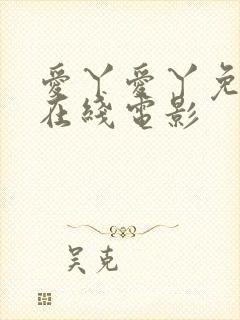 愛丫愛丫免
在綫電影
吴克